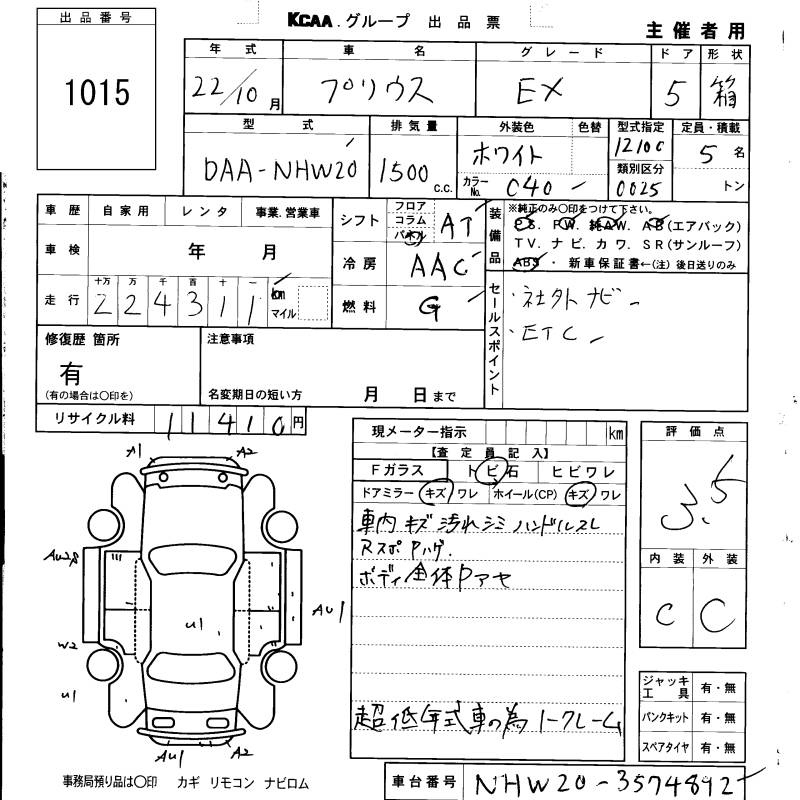 出品番号
KCAA.グループ 出品票
主催者用
1015
年式 車名 グレード ドア 形状
22/10月 プリウス EX 5 箱
型式 排気量 外装色 色替 型式指定 定員・積載
DAA-NHW20 1500 C.C. ホワイト 12100 5名
カラーNo. 040 類別区分 0025 トン
車歴 自家用 レンタ 事業.営業車
シフト フロア コラム パネル AT
装備品 ※純正のみ〇印をつけて下さい。
PS. PW. 純AW. AB(エアバック)
TV. ナビ. カワ. SR(サンルーフ)
ABS・新車保証書←(注)後日送りのみ
車検 年 月
冷房 AAC
走行 十万 万 千 百 十 一
224311 km マイル
燃料 G
セールスポイント
・社外ナビ
・ETC
修復歴 箇所
有
(有の場合は〇印を)
注意事項
名変期日の短い方 月 日まで
リサイクル料 11410円
現メーター指示 km
【査定員記入】
Fガラス トビ石 ヒビワレ
ドアミラー キズ ワレ ホイール(CP) キズ ワレ
車内キズ汚れシミハンドルスレ
Rスポ Pハゲ.
ボディ全体Pアセ
超低年式車の為ノークレーム
評価点
3.5
内装 外装
C C
ジャッキ工具 有・無
パンクキット 有・無
スペアタイヤ 有・無
A1 A2
AU28
U1
AU1
W2
U1
AU1 A2
事務局預り品は〇印 カギ リモコン ナビロム
車台番号 NHW20-3574892